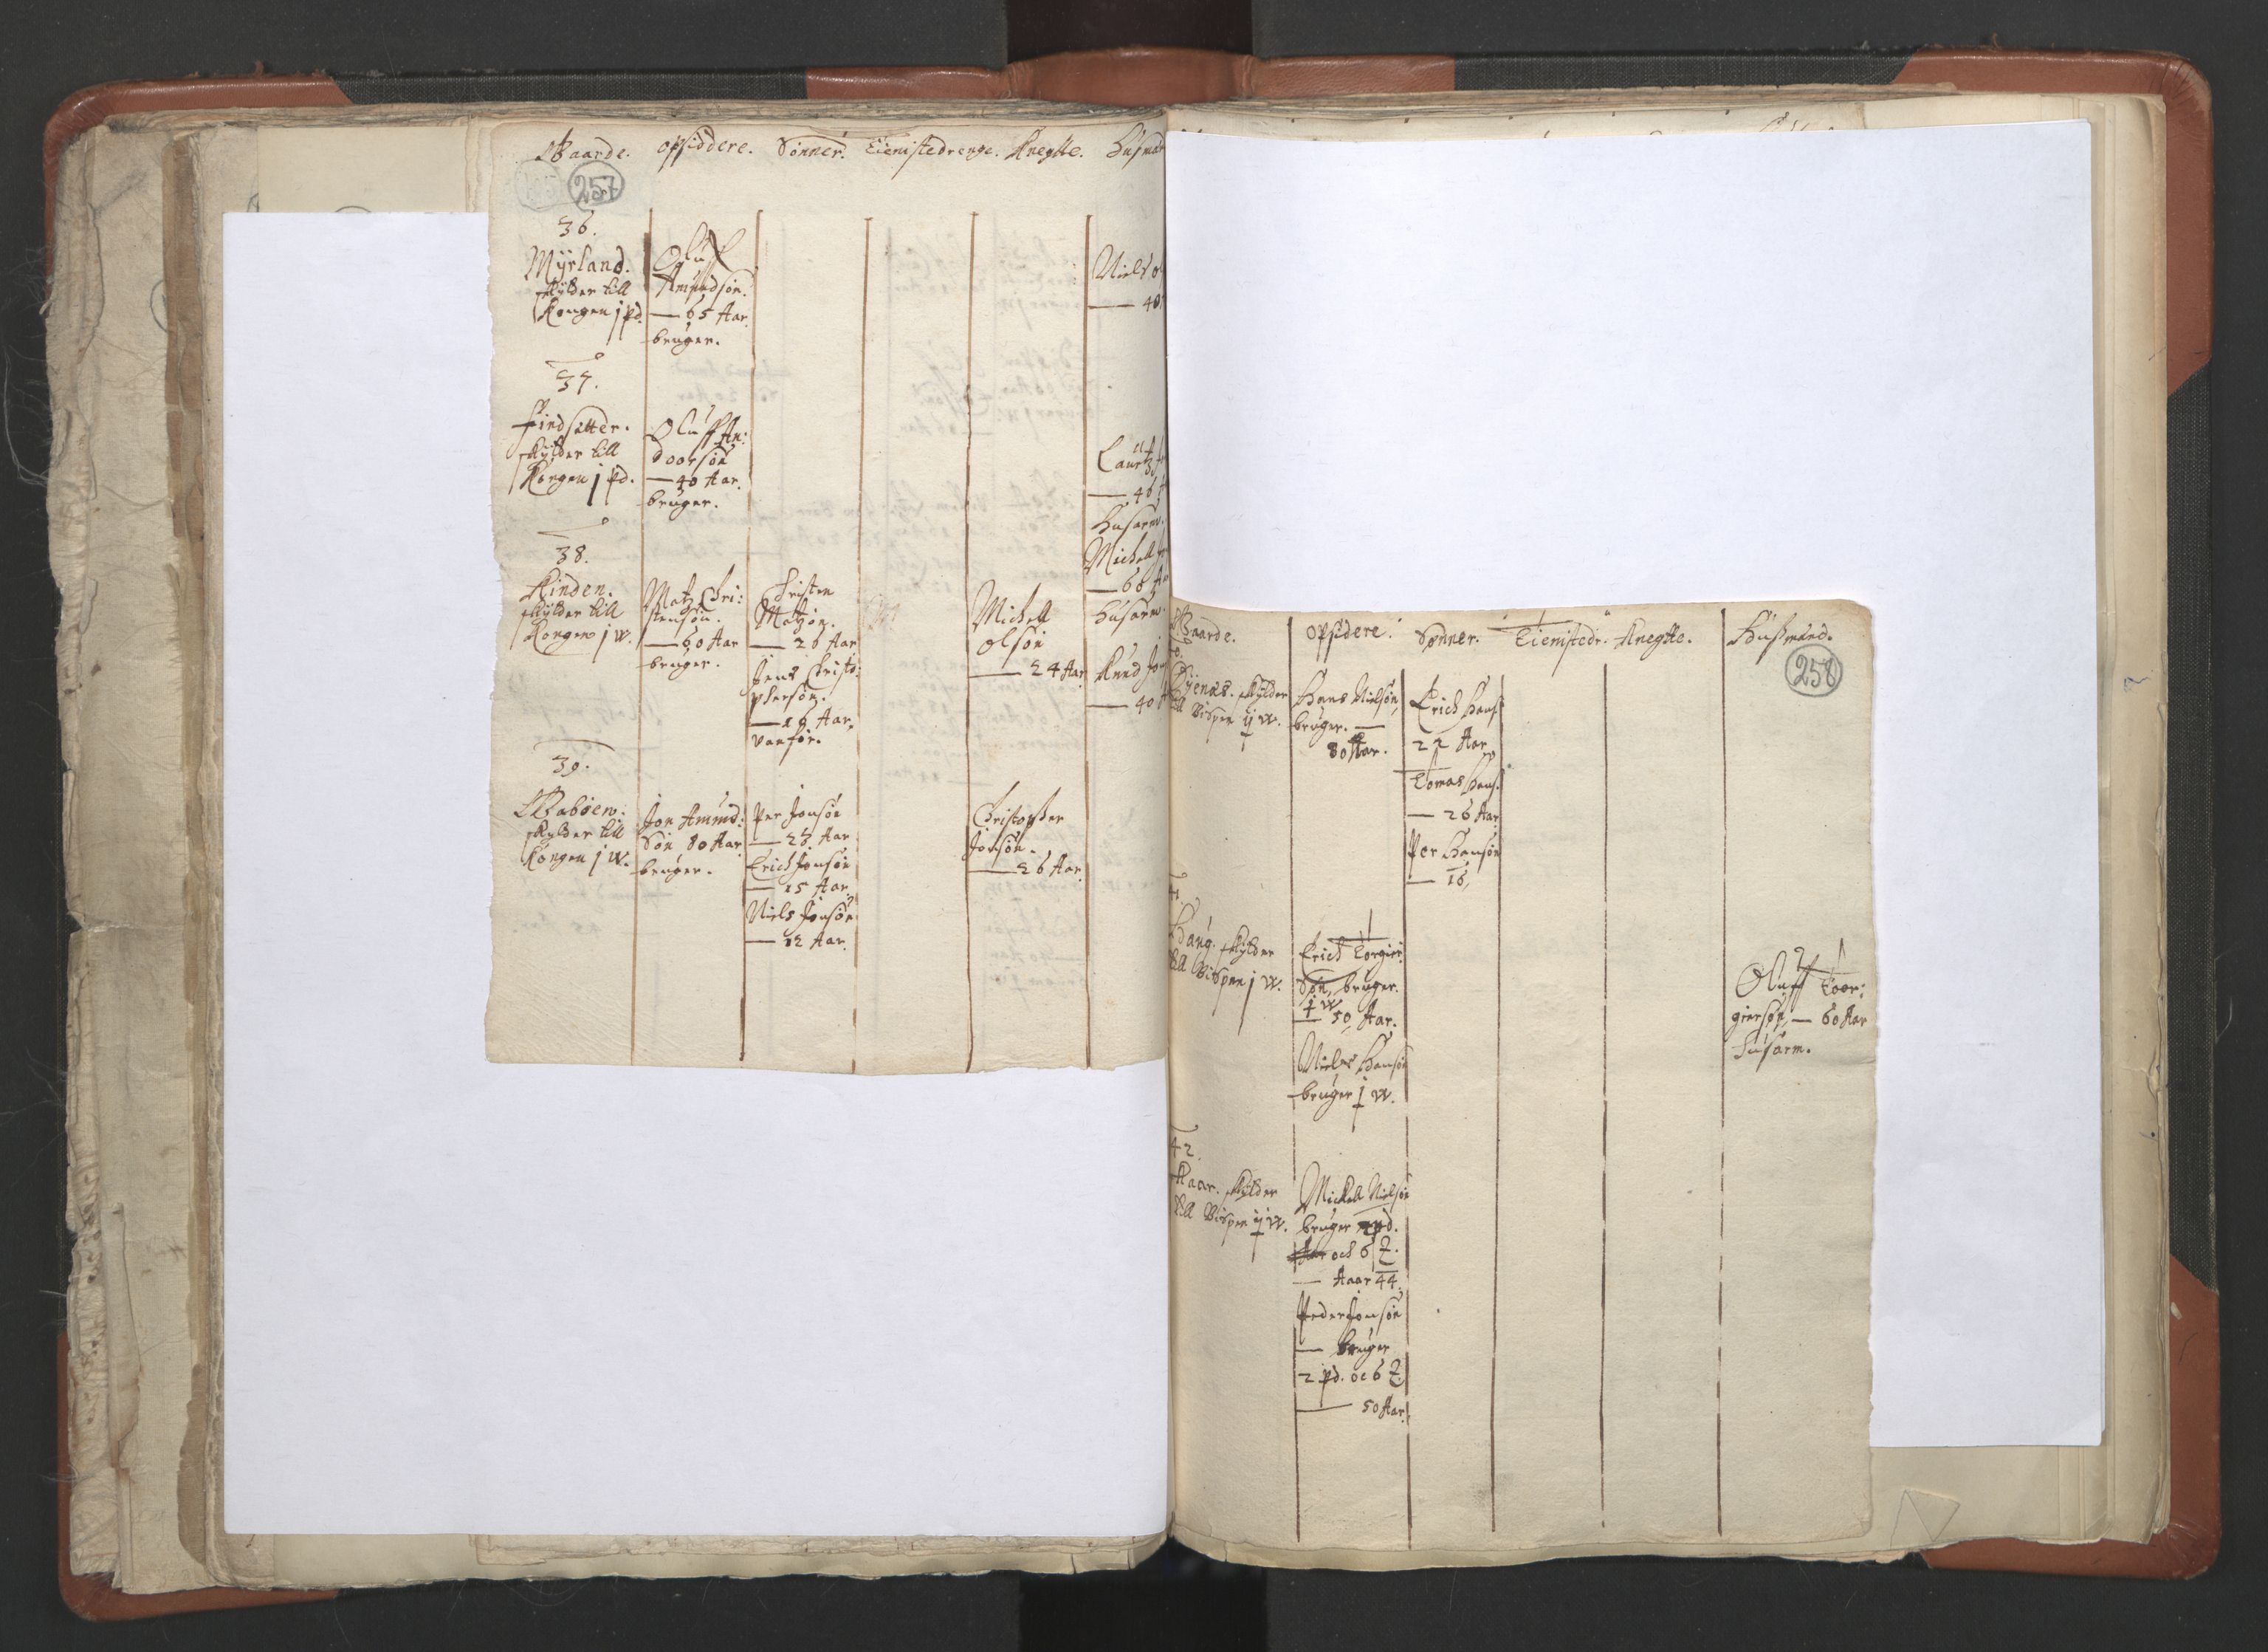 Gaarde. opsiddere. Sønner. Tienistedrenge. Knegtte. Husmæn
257
36.
Myrland.
skylder till
Kongen j pd.
Oluf
Amundsøn.
— 65 Aar.
bruger.
Niels
— 40
37.
Findsetter.
skylder till
Kongen j pd.
Oluff An:
doorsøn
— 40 Aar.
bruger.
Laurtz
— 46
Husarm.
Michell
— 60
Husarm.
38.
Rinden.
skylder till
Kongen j w.
Matz Chri:
stensøn.
— 60 Aar
bruger.
Christen
Matzøn.
— 26 Aar
Jens Christo:
phersøn.
Aar.
vanfør.
Michell
olsøn
— 24 Aar
Knud
— 40
39.
Gabøen.
skylder till
Kongen j w.
Jon Amund:
Søn 80 Aar
bruger.
Per Jonsøn
— 28 Aar
Erich Jonsøn
— 15 Aar.
Niels Jonsøn
— 12 Aar.
Christopher
Jonsøn.
— 26 Aar.
Gaarde. opsidere. Sønner. Tienistedr. Knegtte. Husmænd.
258
skylder
till Bispen ij w.
Hans Nielsøn,
bruger. —
80 Aar.
Erich Hans:
22 Aar
Tomas Hans:
— 26 Aar
Per Hansøn
— 16
skylder
till Bispen j w.
Erich Torgier:
Søn, bruger.
j w
— 50 Aar.
Niels Hansøn
bruger j w.
Oluff Toor:
giersøn, — 60 Aar
husarm.
42.
skylder
till Bispen ij w.
Michell Nielsøn
bruger pd.
och 6
— Aaar 44.
Peder Jonsøn
— bruger
2 pd. oc 6
— 50 Aar.